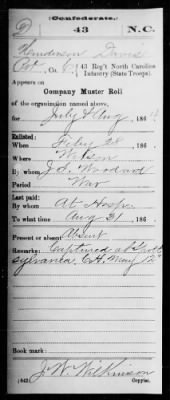 (Confederate.)
D 43 N.C.
Henderson Davis
Pvt, Co. C, 43 Reg't North Carolina
Infantry (State Troops).
Appears on
Company Muster Roll
of the organization named above,
for July & Aug, 186
Enlisted:
When Feby 28, 186
Where Wilson
By whom J. S. Woodard
Period War
Last paid:
By whom
To what time Aug 31, 186
Present or absent Absent
Remarks: Captured at Spott
sylvania, C.H. May 12"
Book mark:
J. W. Wilkinson
(642) Copyist.